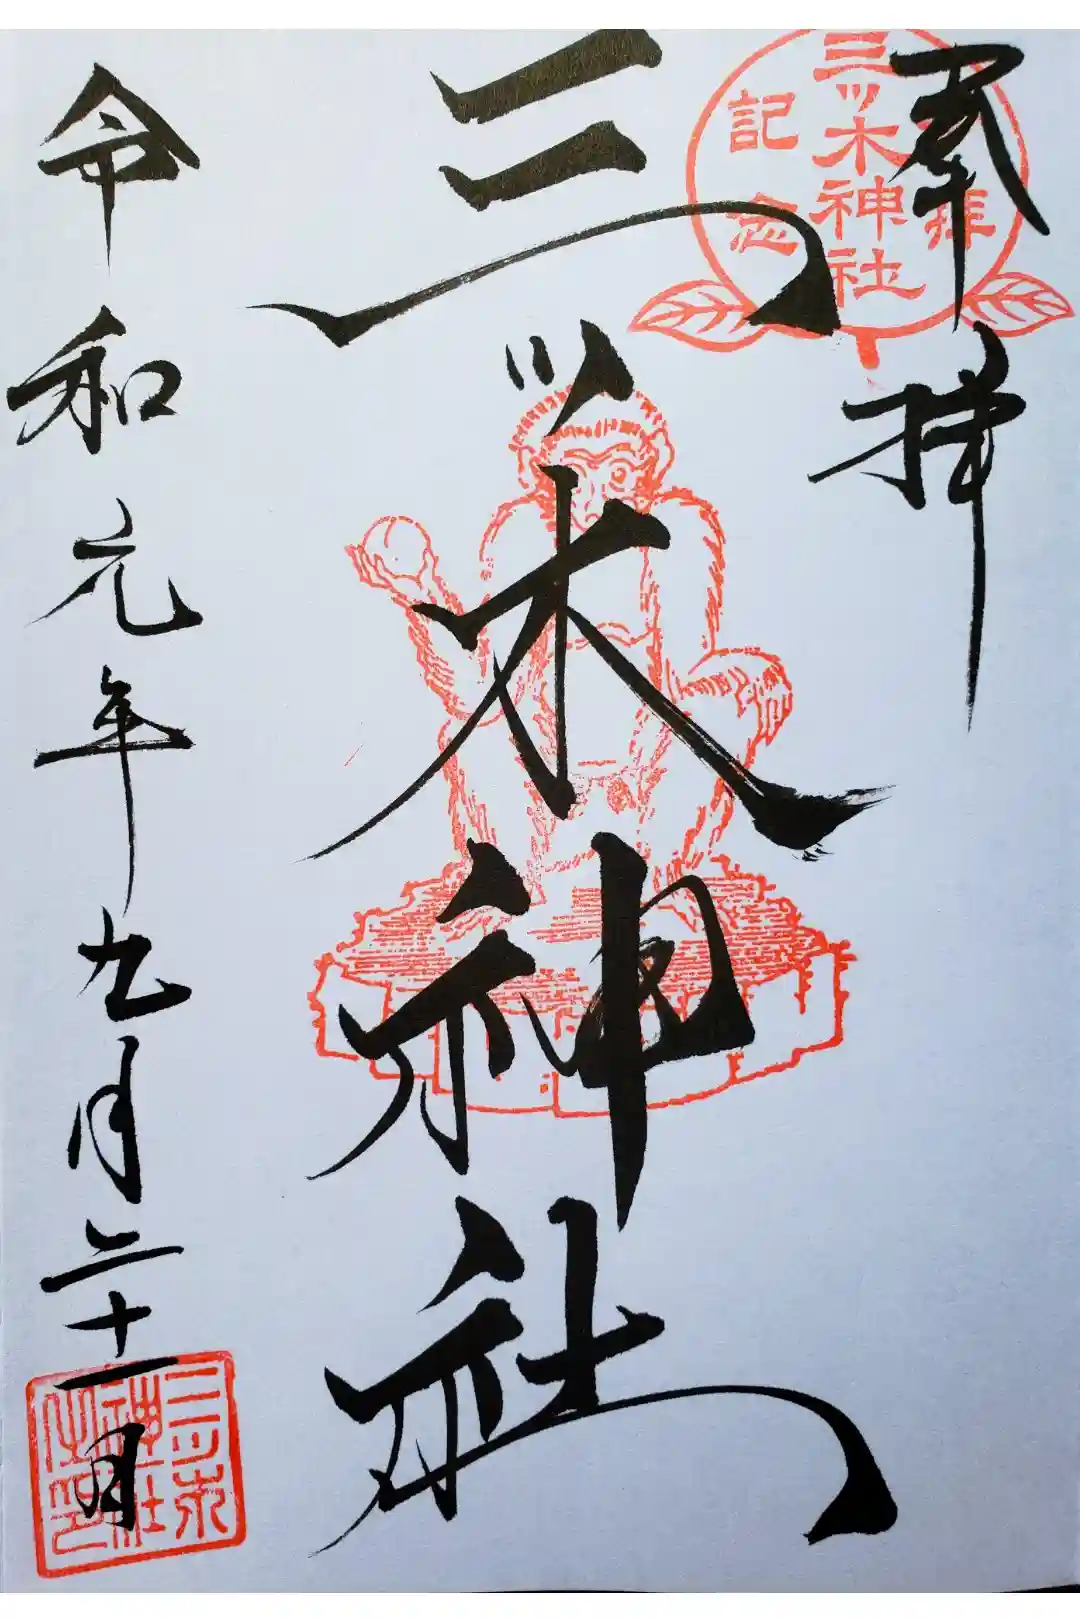 奉拝
参拝
三ッ木神社
記念
三ッ木神社
令和元年九月二十一日
三ツ木
神社
之印